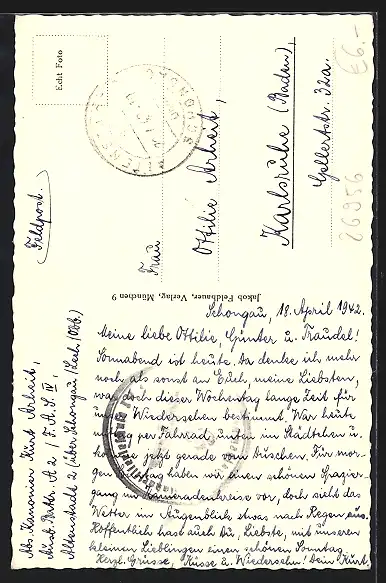 Schongau, 18. April 1942.
Meine liebe Ottilie, Günter u. Traudel!
Sonnabend ist heute. Da denke ich mehr
noch als sonst an Euch, meine Liebsten,
war doch dieser Wochentag lange Zeit für
Wiedersehen bestimmt. War heute
per Fahrrad unten im Städtchen u.
jetzt gerade vom Duschen. Für mor-
gen haben wir einen schönen Spazier-
gang im Kameradenkreise vor, doch sieht das
Wetter im Augenblick etwas nach Regen aus.
Hoffentlich hast auch Du, Liebste, mit unseren
kleinen Lieblingen einen schönen Sonntag.
Herzl. Grüsse, Küsse u. Wiedersehn! Dein Kurt.
Abs. Kanonier Kurt Arheit,
2 / F.A.S. IV,
Altenstadt 2 (über Schongau/Lech (Obb.)
Feldpost.
Echt Foto
SCHONGAU
Frau
Ottilie Arheit,
Karlsruhe (Baden),
Gellertstr. 32a.
Jakob Feldbauer, Verlag, München 9
€6.-
26956